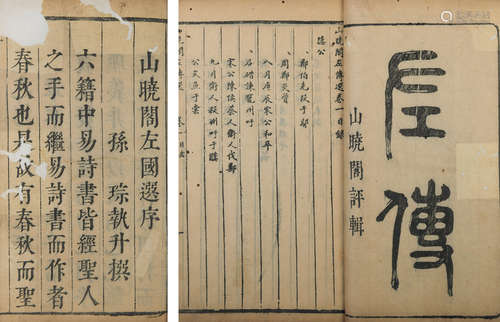 左傳
山曉閣評輯
山曉閣左傳選卷一目錄
隱公
鄭伯克段于鄢
周鄭交質
八月庚辰宋公和卒
石碏諫寵州吁
宋公陳侯蔡人衛人伐鄭
九月衛人殺州吁于濮
公矢魚于棠
山曉閣左國選序
孫琮執升撰
六籍中易詩書皆經聖人
之手而繼易詩書而作者
春秋也是故有春秋而聖